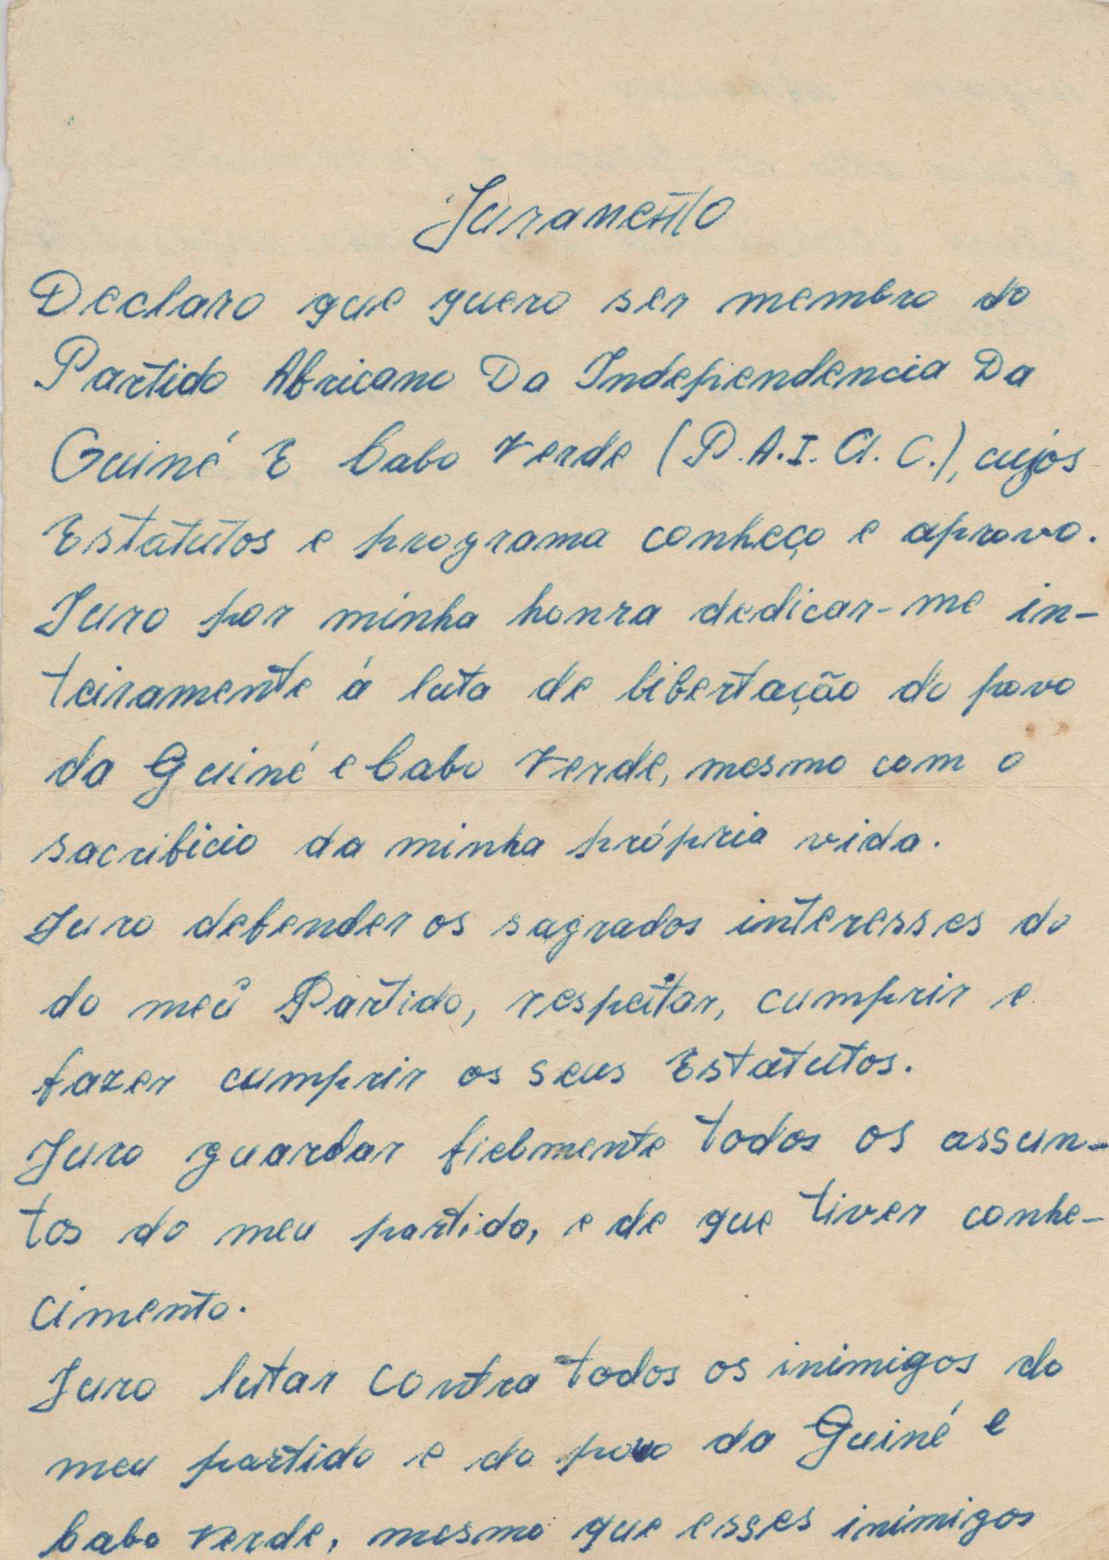 Juramento
Declaro que quero ser membro do
Partido Africano Da Independencia Da
Guiné E Cabo Verde (P.A.I.G.C.), cujos
Estatutos e programa conheço e aprovo.
Juro por minha honra dedicar-me in-
teiramente á luta de libertação do povo
da Guiné e Cabo Verde, mesmo com o
sacrificio da minha própria vida.
Juro defender os sagrados interesses do
do meu Partido, respeitar, cumprir e
fazer cumprir os seus Estatutos.
Juro guardar fielmente todos os assun-
tos do meu partido, e de que tiver conhe-
cimento.
Juro lutar contra todos os inimigos do
meu partido e do povo da Guiné e
Cabo Verde, mesmo que esses inimigos